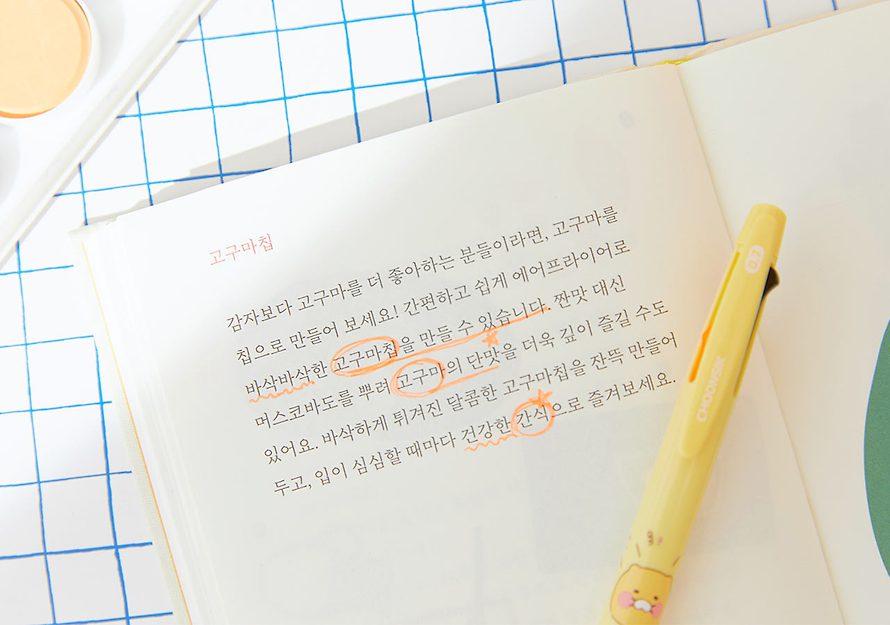 고구마칩
감자보다 고구마를 더 좋아하는 분들이라면, 고구마를
칩으로 만들어 보세요! 간편하고 쉽게 에어프라이어로
바삭바삭한 고구마칩을 만들 수 있습니다. 짠맛 대신
머스코바도를 뿌려 고구마의 단맛을 더욱 깊이 즐길 수도
있어요. 바삭하게 튀겨진 달콤한 고구마칩을 잔뜩 만들어
두고, 입이 심심할 때마다 건강한 간식으로 즐겨보세요.
0.7
CHOONSIK